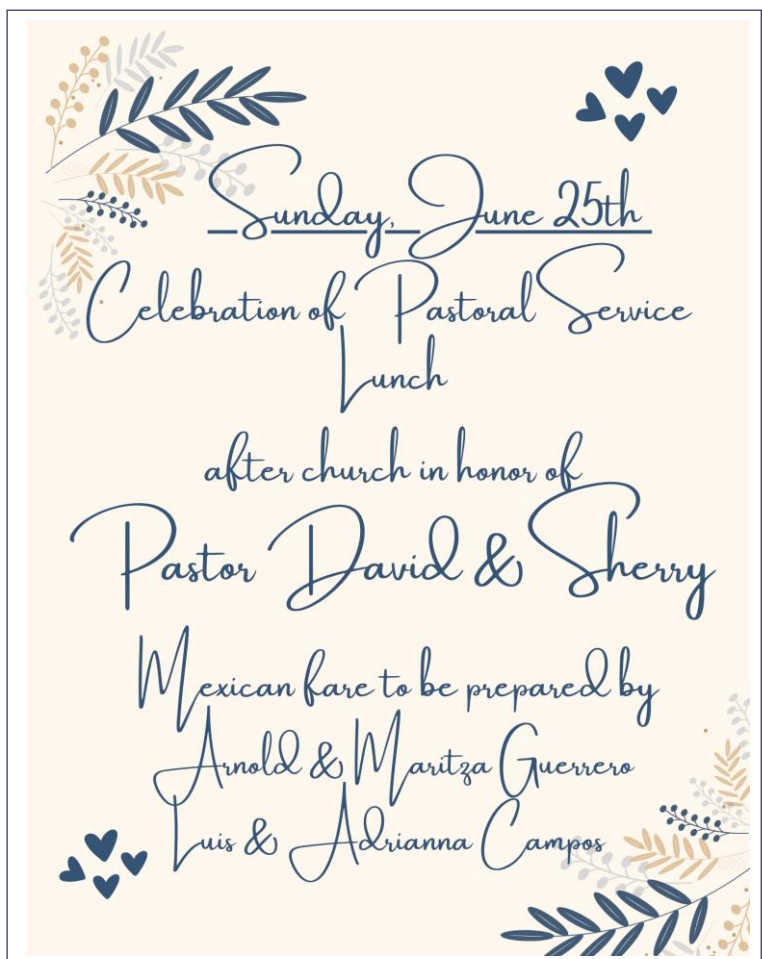 Sunday, June 25th
Celebration of Pastoral Service
Lunch
after church in honor of
Pastor David & Sherry
Mexican fare to be prepared by
Arnold & Maritza Guerrero
Luis & Adrianna Campos